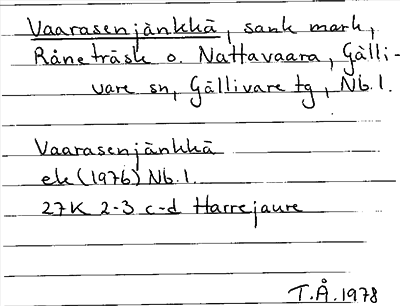 Vaarasenjänkkä, sank mark,
Råneträsk o. Nattavaara, Gälli-
vare sn, Gällivare tg, Nb. l.
Vaarasenjänkkä
ek (1976) Nb. l.
27K 2-3 c-d Harrejaure
T.Å. 1978